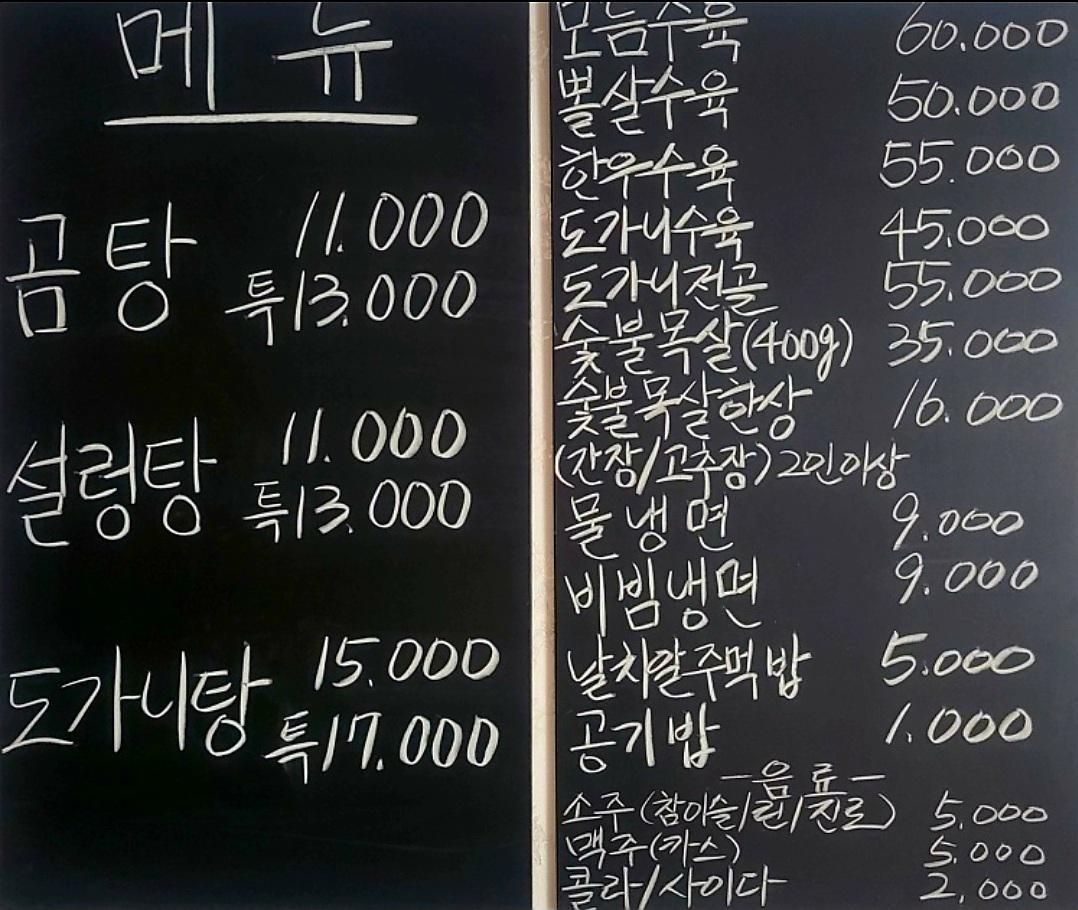 메뉴
곰탕 11.000
특 13.000
설렁탕 11.000
특 13.000
도가니탕 15.000
특 17.000
모듬수육 60.000
뽈살수육 50.000
한우수육 55.000
도가니수육 45.000
도가니전골 55.000
숯불목살(400g) 35.000
숯불목살한상 16.000
(간장/고추장) 2인이상
물냉면 9.000
비빔냉면 9.000
날치알주먹밥 5.000
공기밥 1.000
-음료-
소주(참이슬/린/진로) 5.000
맥주(카스) 5.000
콜라/사이다 2,000